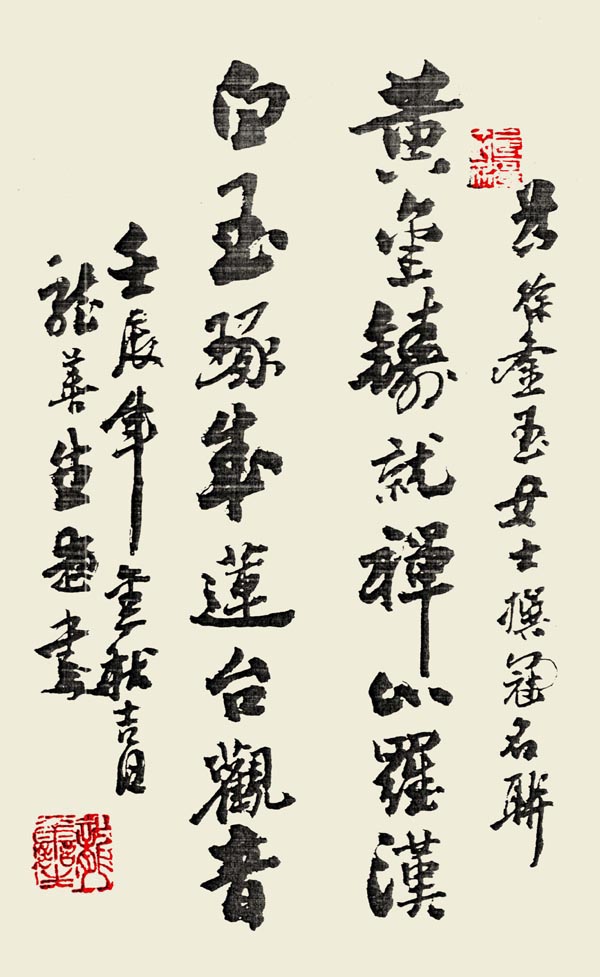 徐金玉女士撰冠名聯
黃金鑄就禪心羅漢
白玉琢成蓮台觀音
壬辰年金秋吉日
龍善生題書